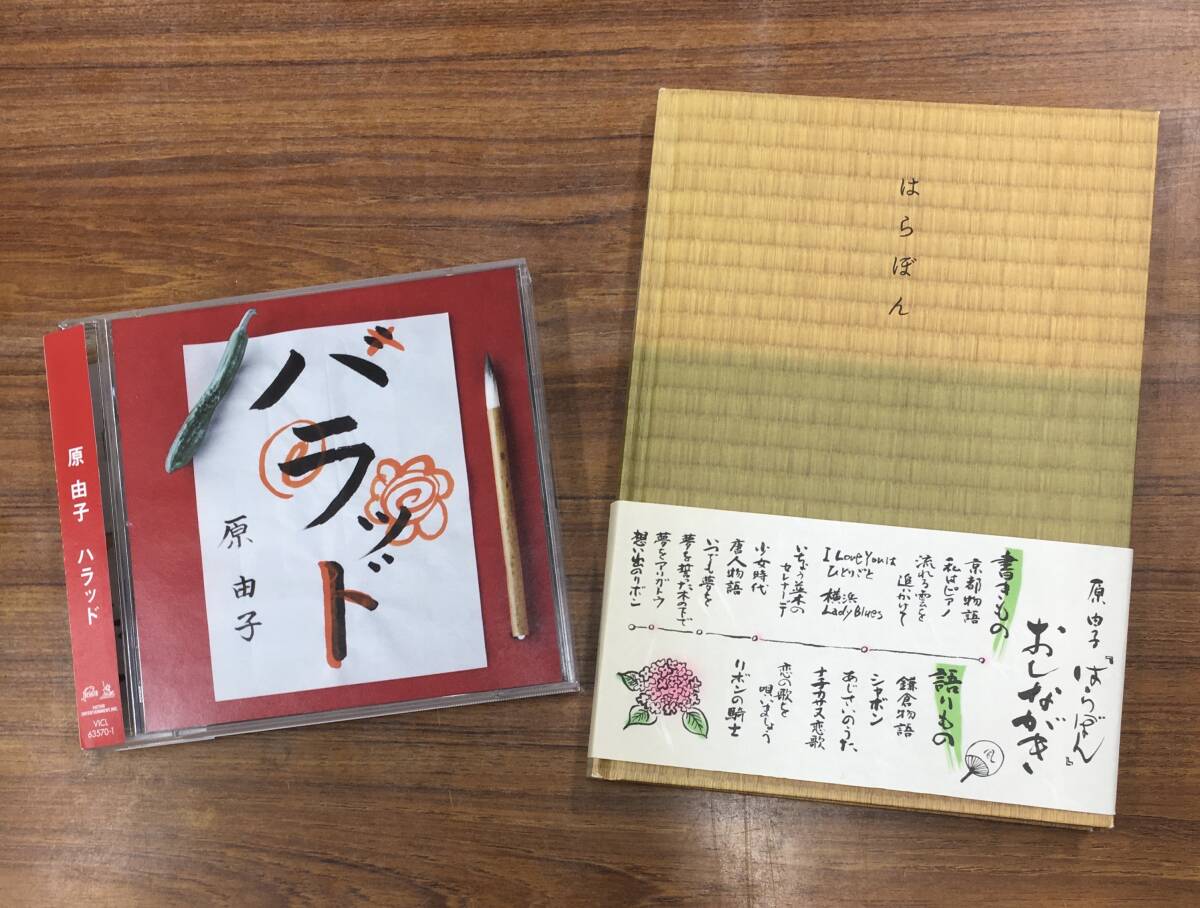 原 由子 ハラッド
VICTOR ENTERTAINMENT, INC.
VICL
63570-1
バラッド
原 由子
はらぼん
原 由子『はらぼん』
おしながき
書きもの
京都物語
私はピアノ
流れる雲を
追いかけて
I Love Youは
ひとりごと
横浜
Lady Blues
いちょう並木の
セレナーデ
少女時代
唐人物語
いつでも夢を
夢を誓った木の下で
夢をアリガトウ
想い出のリボン
語りもの
鎌倉物語
シャボン
あじさいのうた
ナチカサス恋歌
恋の歌を
唄いましょう
リボンの騎士